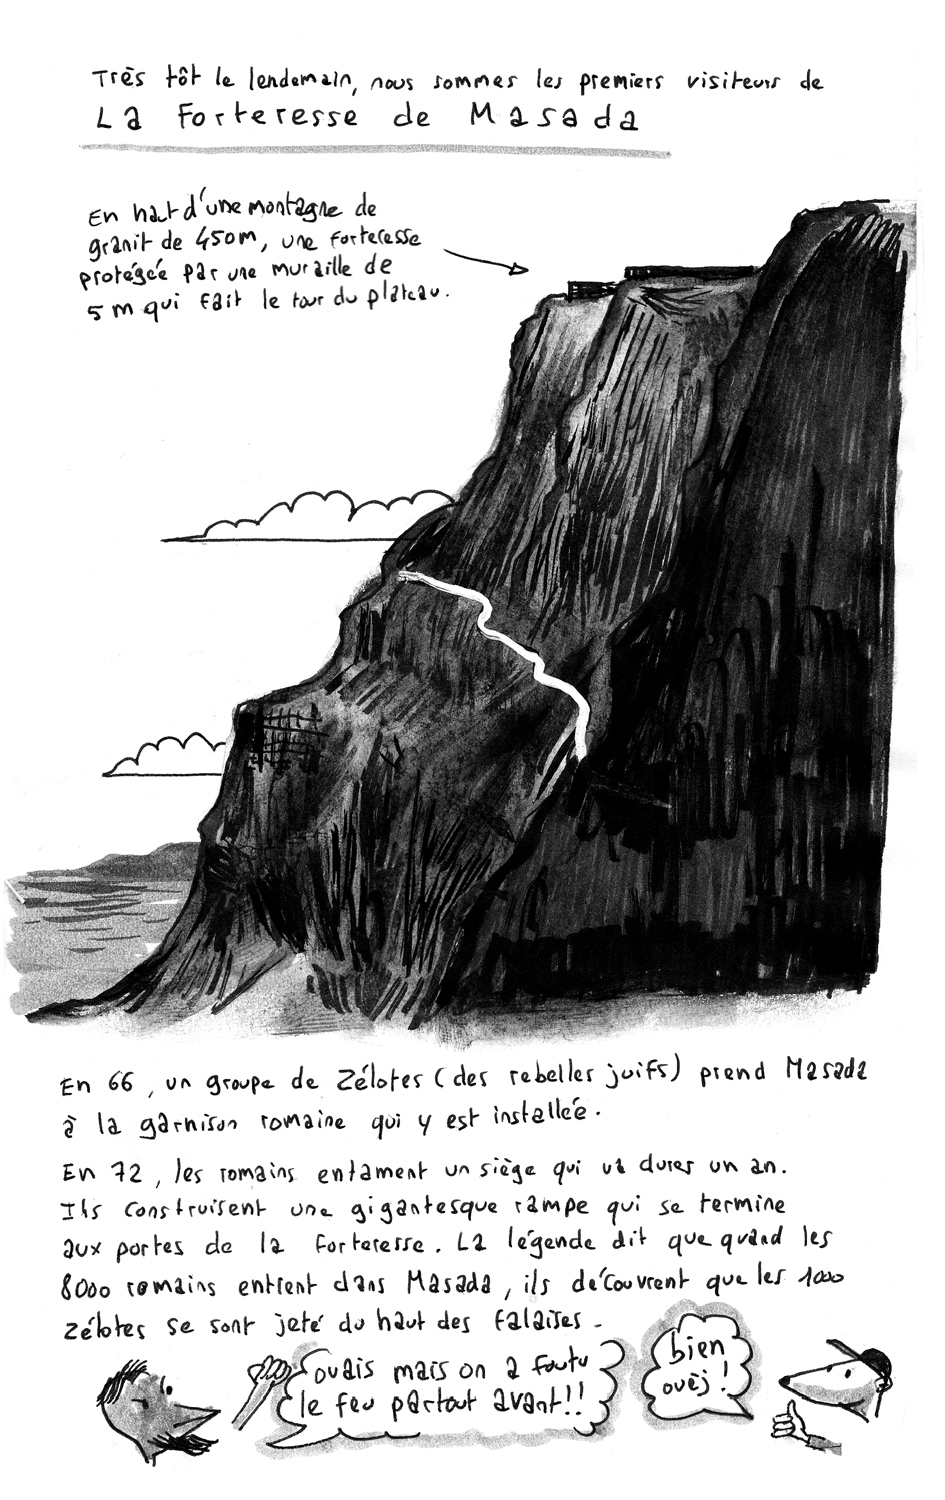 Très tôt le lendemain, nous sommes les premiers visiteurs de
La Forteresse de Masada
En haut d'une montagne de
granit de 450m, une forteresse
protégée par une muraille de
5 m qui fait le tour du plateau.
En 66, un groupe de Zélotes (des rebelles juifs) prend Masada
à la garnison romaine qui y est installée.
En 72, les romains entament un siège qui va durer un an.
Ils construisent une gigantesque rampe qui se termine
aux portes de la forteresse. La légende dit que quand les
8000 romains entrent dans Masada, ils découvrent que les 1000
Zélotes se sont jeté du haut des falaises.
ouais mais on a foutu
le feu partout avant!!
bien
ouèj!